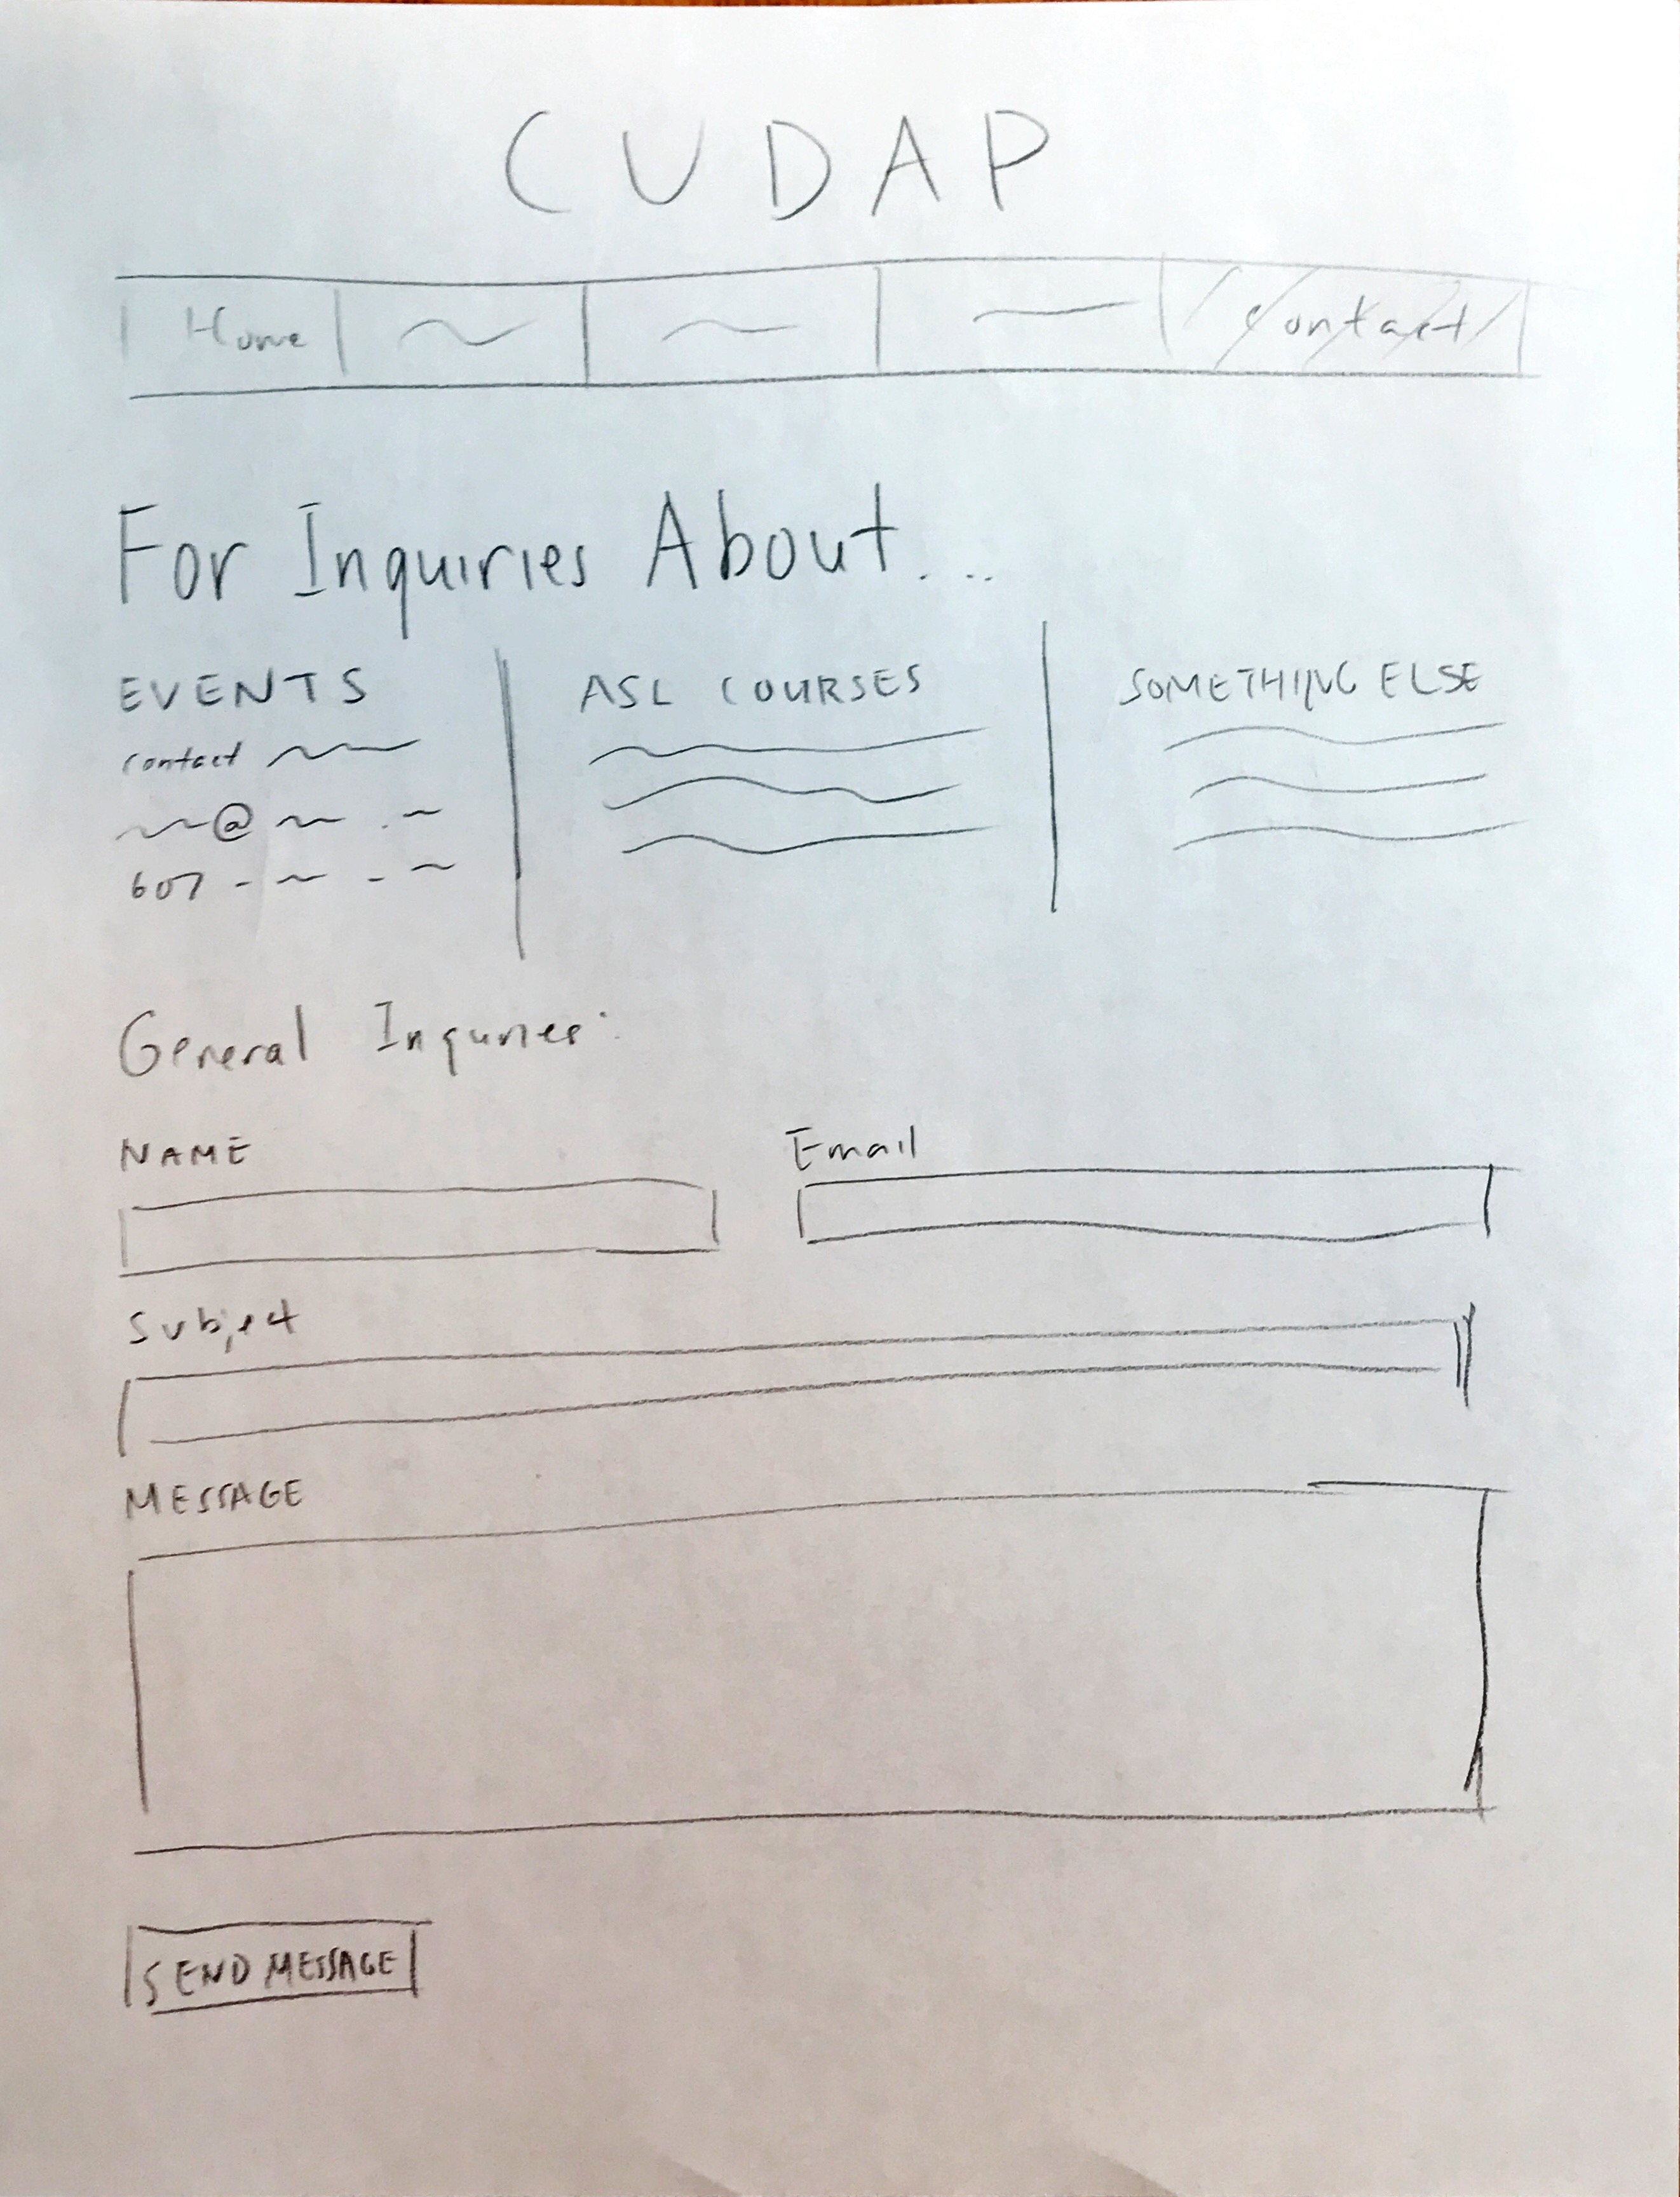 CUDAP
Home Contact
For Inquiries About...
EVENTS ASL COURSES SOMETHING ELSE
contact
@ .
607 - -
General Inquries:
NAME Email
Subject
MESSAGE
SEND MESSAGE